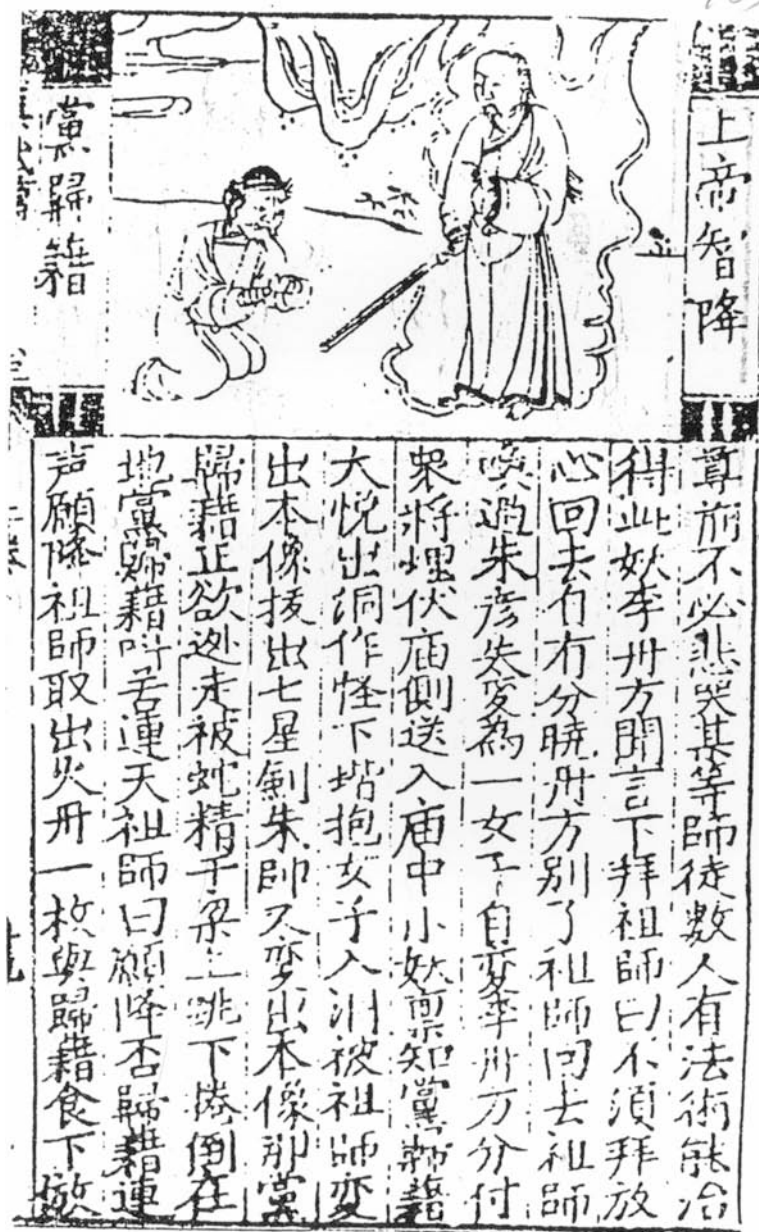 上帝智降
黨歸籍
尊前不必悲哭某等師徒數人有法術能治
得此妖李丹方聞言下拜祖師曰不須拜放
心回去自有分曉丹方別了祖師回去祖師
喚過朱彦夫变為一女子自变李丹方分付
衆將埋伏庙側送入庙中小妖稟知黨歸籍
大悅出洞作怪下堦抱女子入洞被祖師变
出本像拔出七星劍朱帥又变出本像那黨
歸籍正欲迯走被蛇精于梁上跳下捲倒在
地黨歸籍叫苦連天祖師曰願降否歸籍連
声願降祖師取出火丹一枚與歸籍食下放